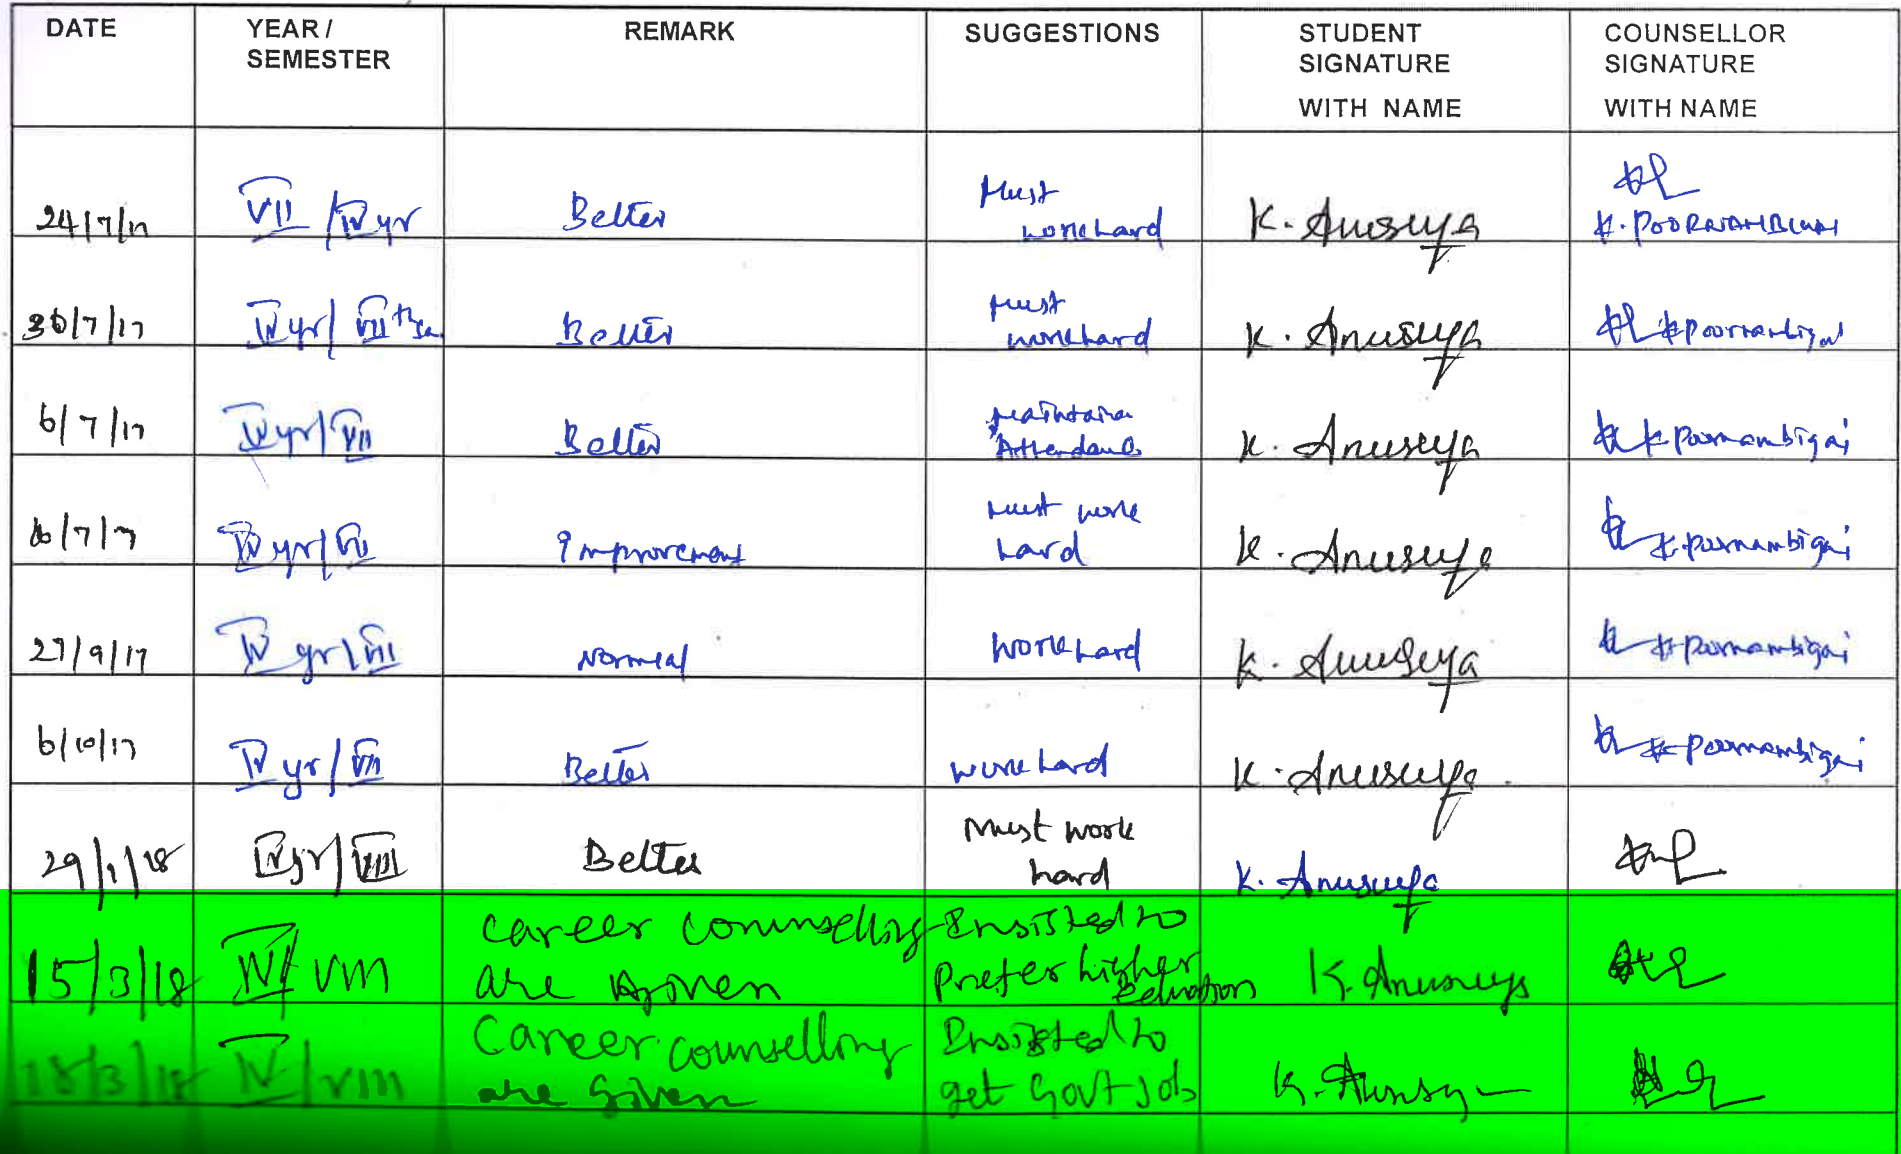 DATE YEAR / REMARK SUGGESTIONS STUDENT COUNSELLOR
SEMESTER SIGNATURE SIGNATURE
WITH NAME WITH NAME
24/7/17 VII / IV yr Better Must
work hard K. Anusuya
30/7/17 IV yr / VII th Better Must
work hard K. Anusuya K Poornambigai
6/7/17 IV yr / VII Better Maintain
Attendance K. Anusuya K Poornambigai
/7/ IV yr / Improvement Must work
hard K. Anusuya K. Poornambigai
27/9/17 IV yr / VII Normal work hard K. Anusuya K Poornambigai
6/10/17 IV yr / VII Better work hard K. Anusuya K Poornambigai
29/1/18 IV yr / VIII Better Must work
hard K. Anusuya
15/3/18 IV / VIII Career Counselling Insisted to
are given Prefer higher
education K. Anusuya
18/3/18 IV / VIII Career counselling Insisted to
are given get Govt Job K. Anusuya